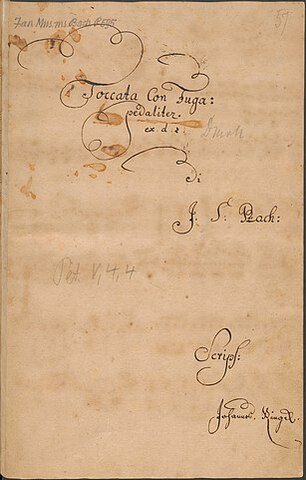 Mus. ms. Bach P 595
57
Toccata Con Fuga:
pedaliter.
ex. d. #.
di
J. S. Bach:
Pet. V, 4, 4
Scrips:
Johannes Ringck.